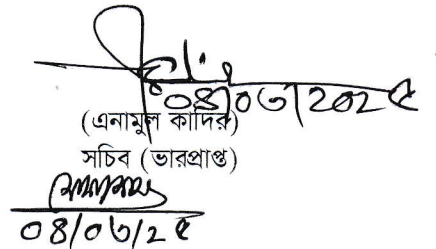 ০৪/০৩/২০২৫
(এনামুল কাদির)
সচিব (ভারপ্রাপ্ত)
০৪/০৩/২৫